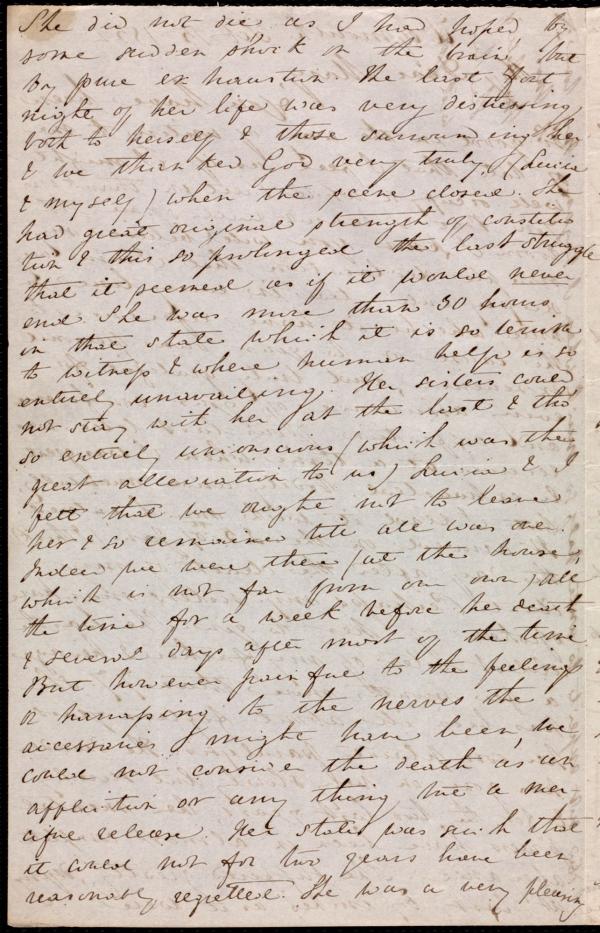 She did not die as I had hoped, by
some sudden shock on the brain, but
by pure exhaustion. The last fort
night of her life was very distressing,
both to herself & those surrounding her
& we thanked God very truly, (Lucia
& myself) when the scene closed. She
had great original strength of constitu
tion & this so prolonged the last struggle
that it seemed as if it would never
end. She was more than 30 hours
in that state which it is so
to witness & where human help is so
entirely unavailing. Her sisters could
not stay with her at the last & tho'
so entirely unconscious (which was the
great alleviation to us) Lucia & I
felt that we ought not to leave
her & so remained till all was over.
Indeed we were there (at the house,
which is not far from our own) all
the time for a week before her death
& several days after most of the time
But however painful to the feelings
or harassing to the nerves the
accessories might have been, we
could not consider the death as an
affliction or any thing but a mer-
ciful release. Her state was such that
it could not for two years have been
reasonably regretted. She was a very pleasing